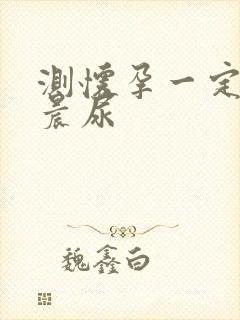 测怀孕一定
晨尿
魏鑫白